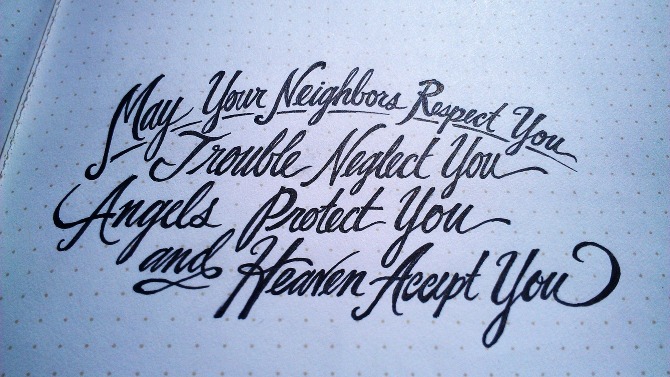 May Your Neighbors Respect You
Trouble Neglect You
Angels Protect You
and Heaven Accept You